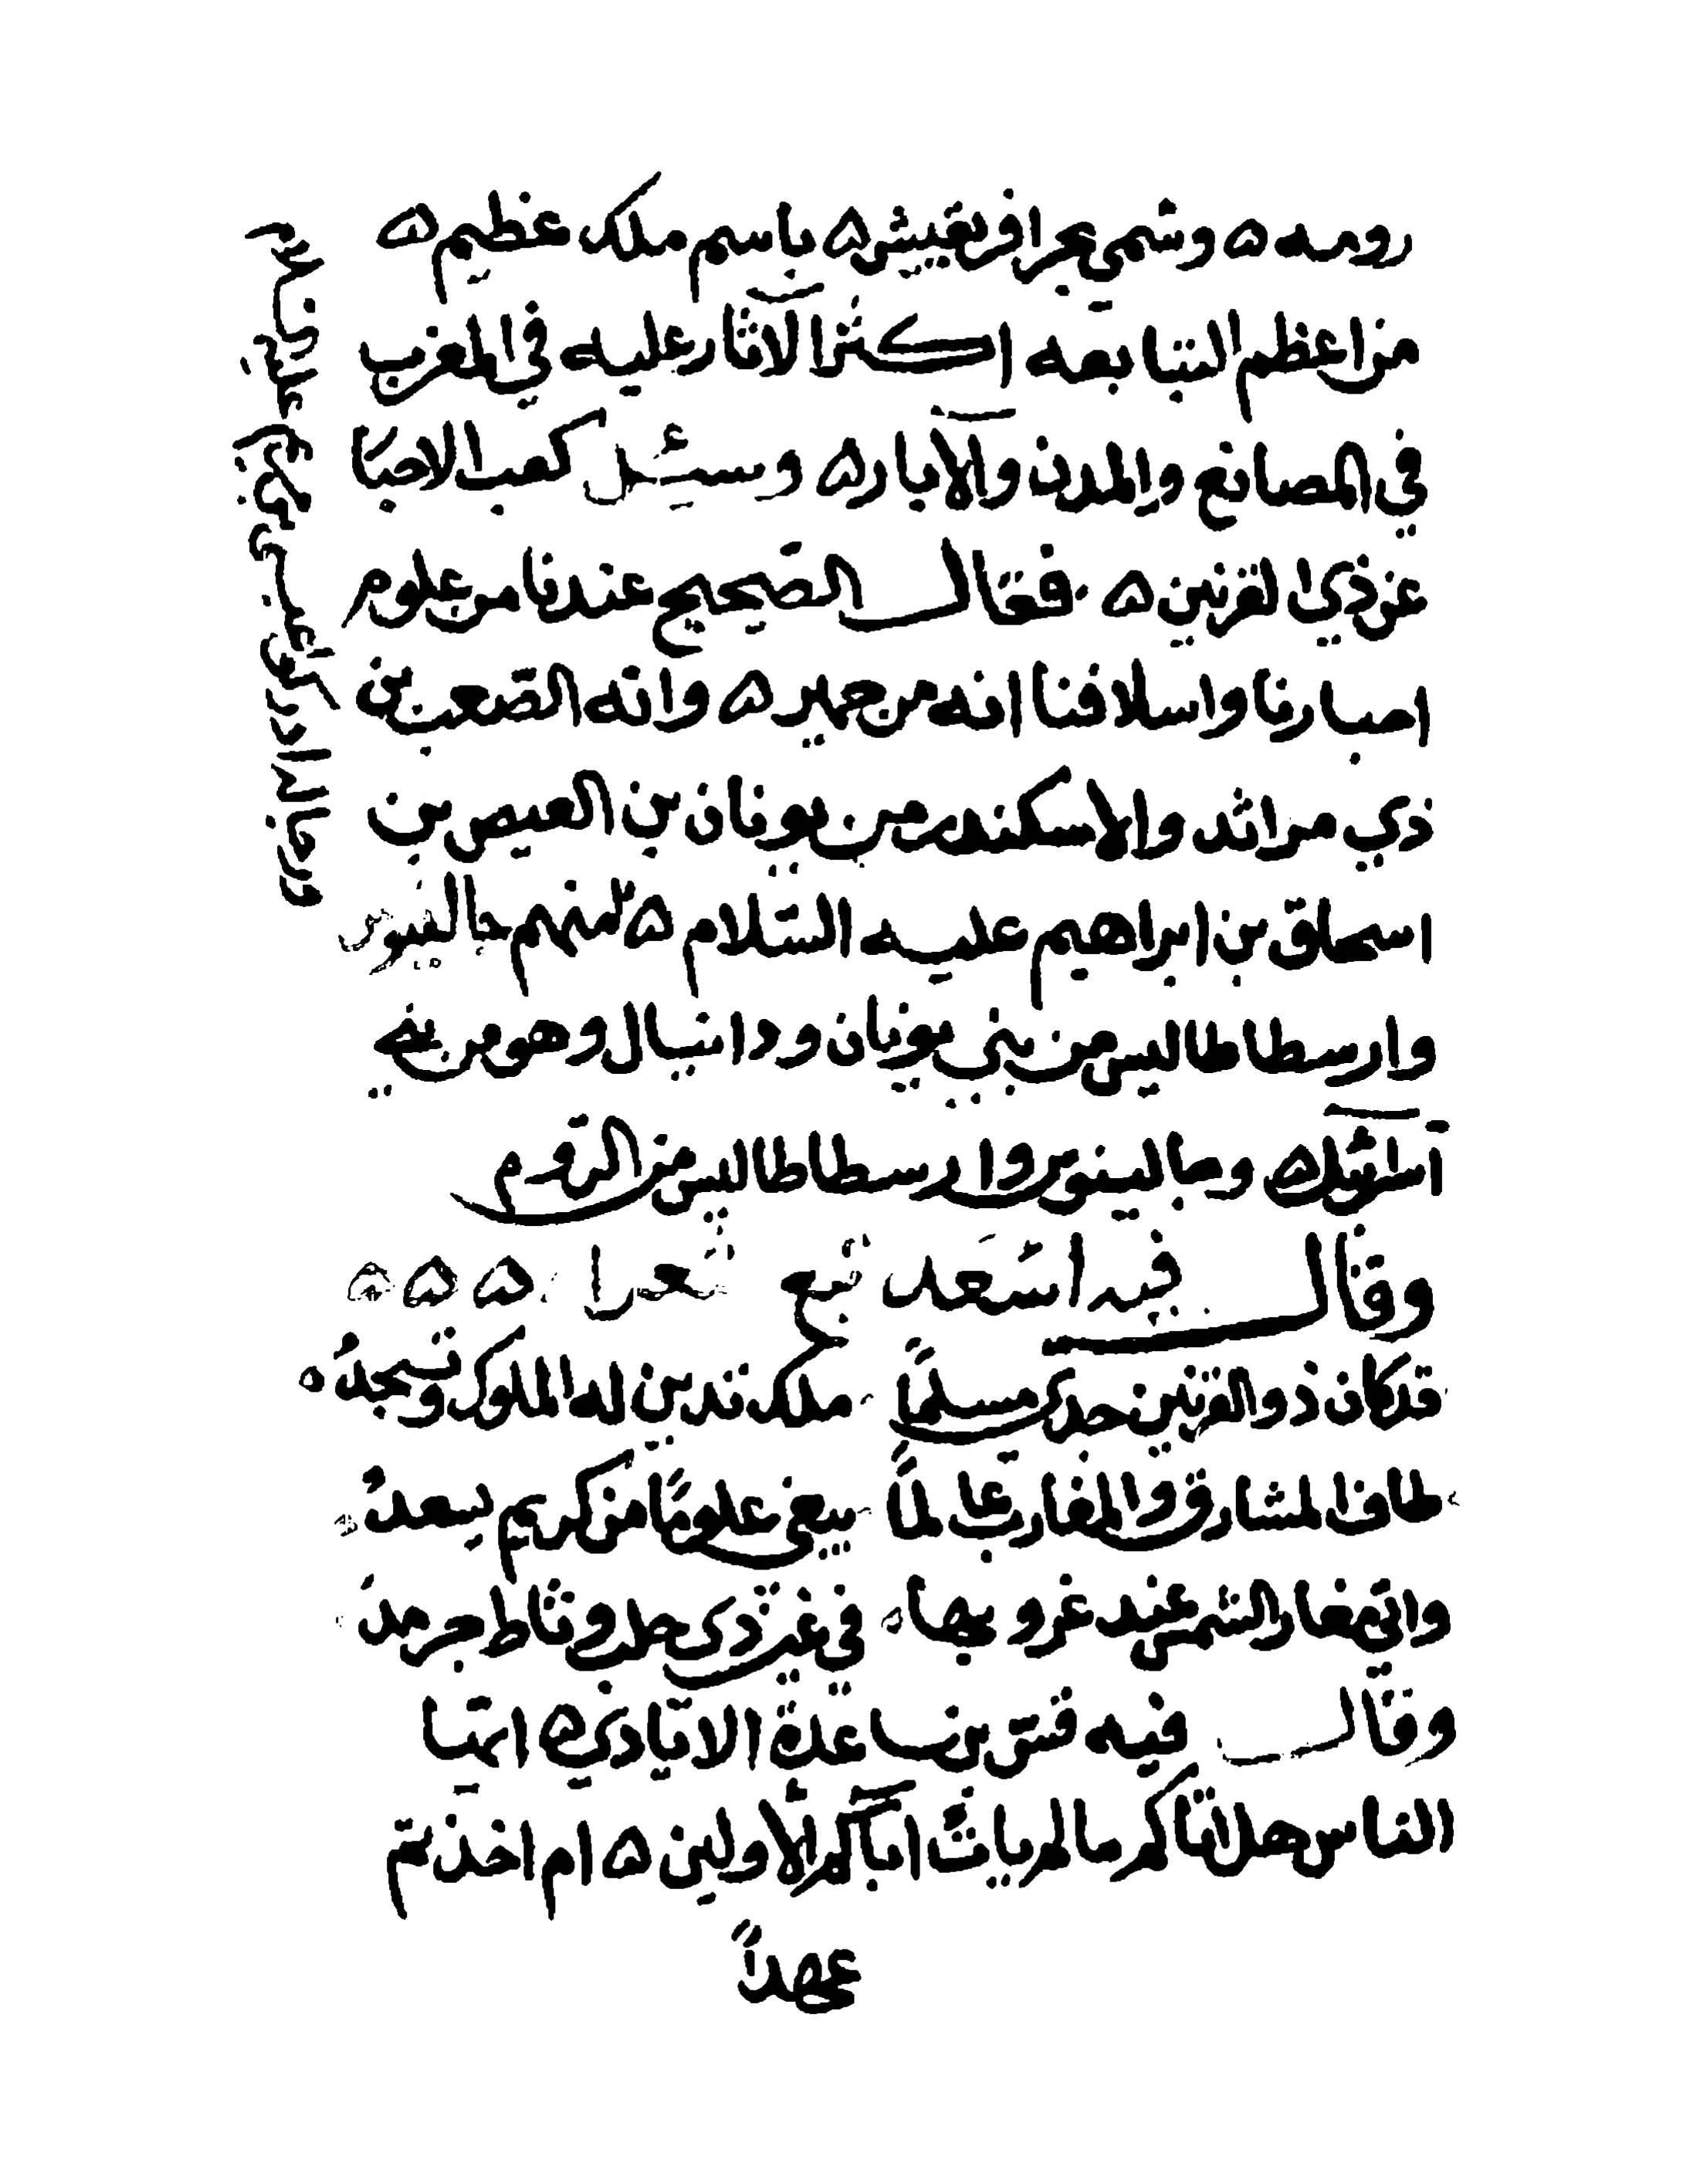 رومه ۵ وسمي بحر افريقيش ۵ باسم ملك عظيم ۵
من اعظم التبابعه اكثر الآثار عليه في المغرب
في المصانع والمدن والآبار ۵ وسئل كعب الاحبا
عن ذي القرنين ۵ فقال الصحيح عندنا من علوم
احبارنا واسلافنا انه من حمير ۵ وانه الصعب بن
ذي مراثد والاسكندر من يونان بن العيص بن
اسحاق بن ابراهيم عليه السّلام ۵ منهم جالينوس
وارسطاطاليس من بني يونان ودانيال وهو من بني
اسرائيل ۵ وجالينوس وارسطاطاليس من الرّوم
وقال فيه اسعد تبع شعرا ۵ ۵ ۵
قد كان ذو القرنين جدي مسلماً ملك تدين له الملوك وتسجدُ ۵
طاف المشارق والمغارب عالماً يبغي علومًا من كريم يسعدُ
واتى مغار الشمس عند غروبها ۵ في عين ذي خلب وثاط حرمد
وقال فيه قسّ بن ساعدة الايادي ۵ ايّها
الناس هل اتاكم ما لم يات اباكم الأولين ۵ ام اخذتم
عهداً